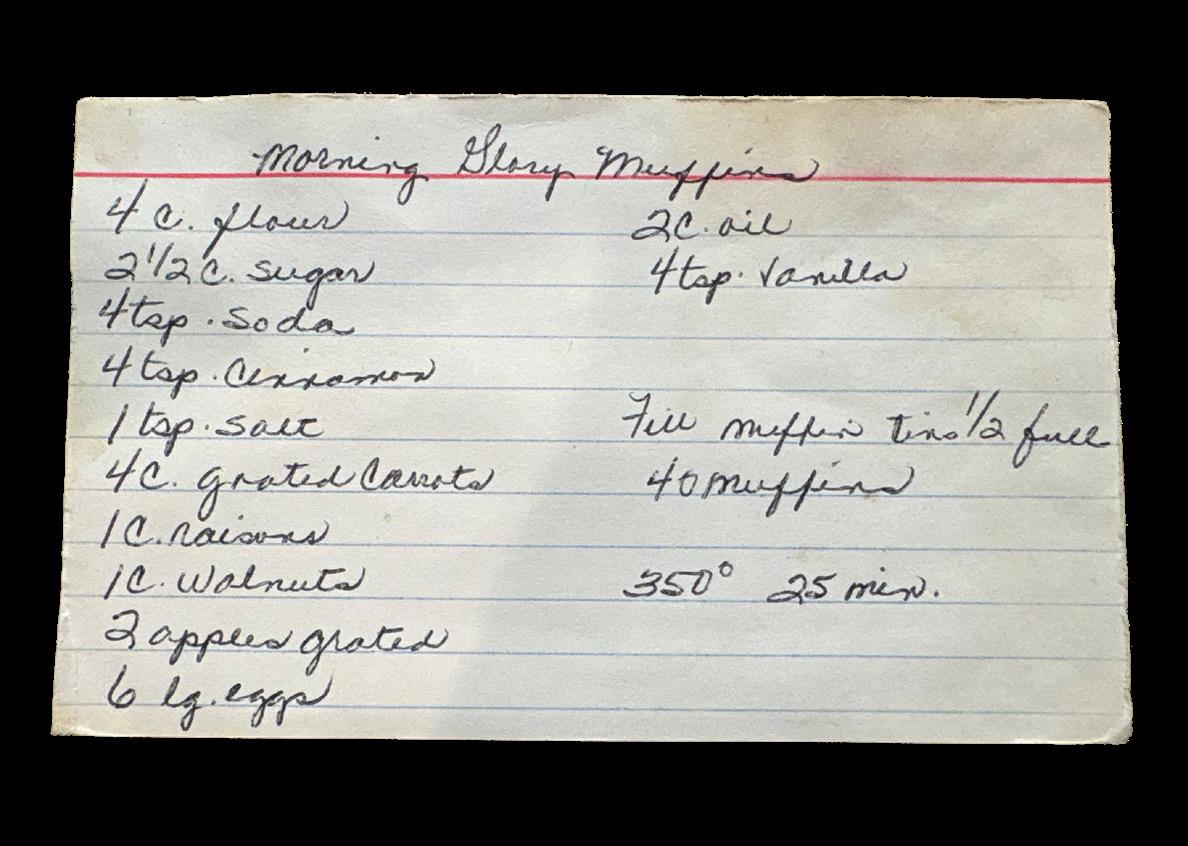 Morning Glory Muffins
4 C. flour
2 1/2 C. sugar
4 tsp. soda
4 tsp. Cinnamon
1 tsp. salt
4 C. grated Carrots
1 C. raisons
1 C. Walnuts
2 apples grated
6 lg. eggs
2 C. oil
4 tsp. Vanilla
Fill muffin tins 1/2 full
40 muffins
350° 25 min.